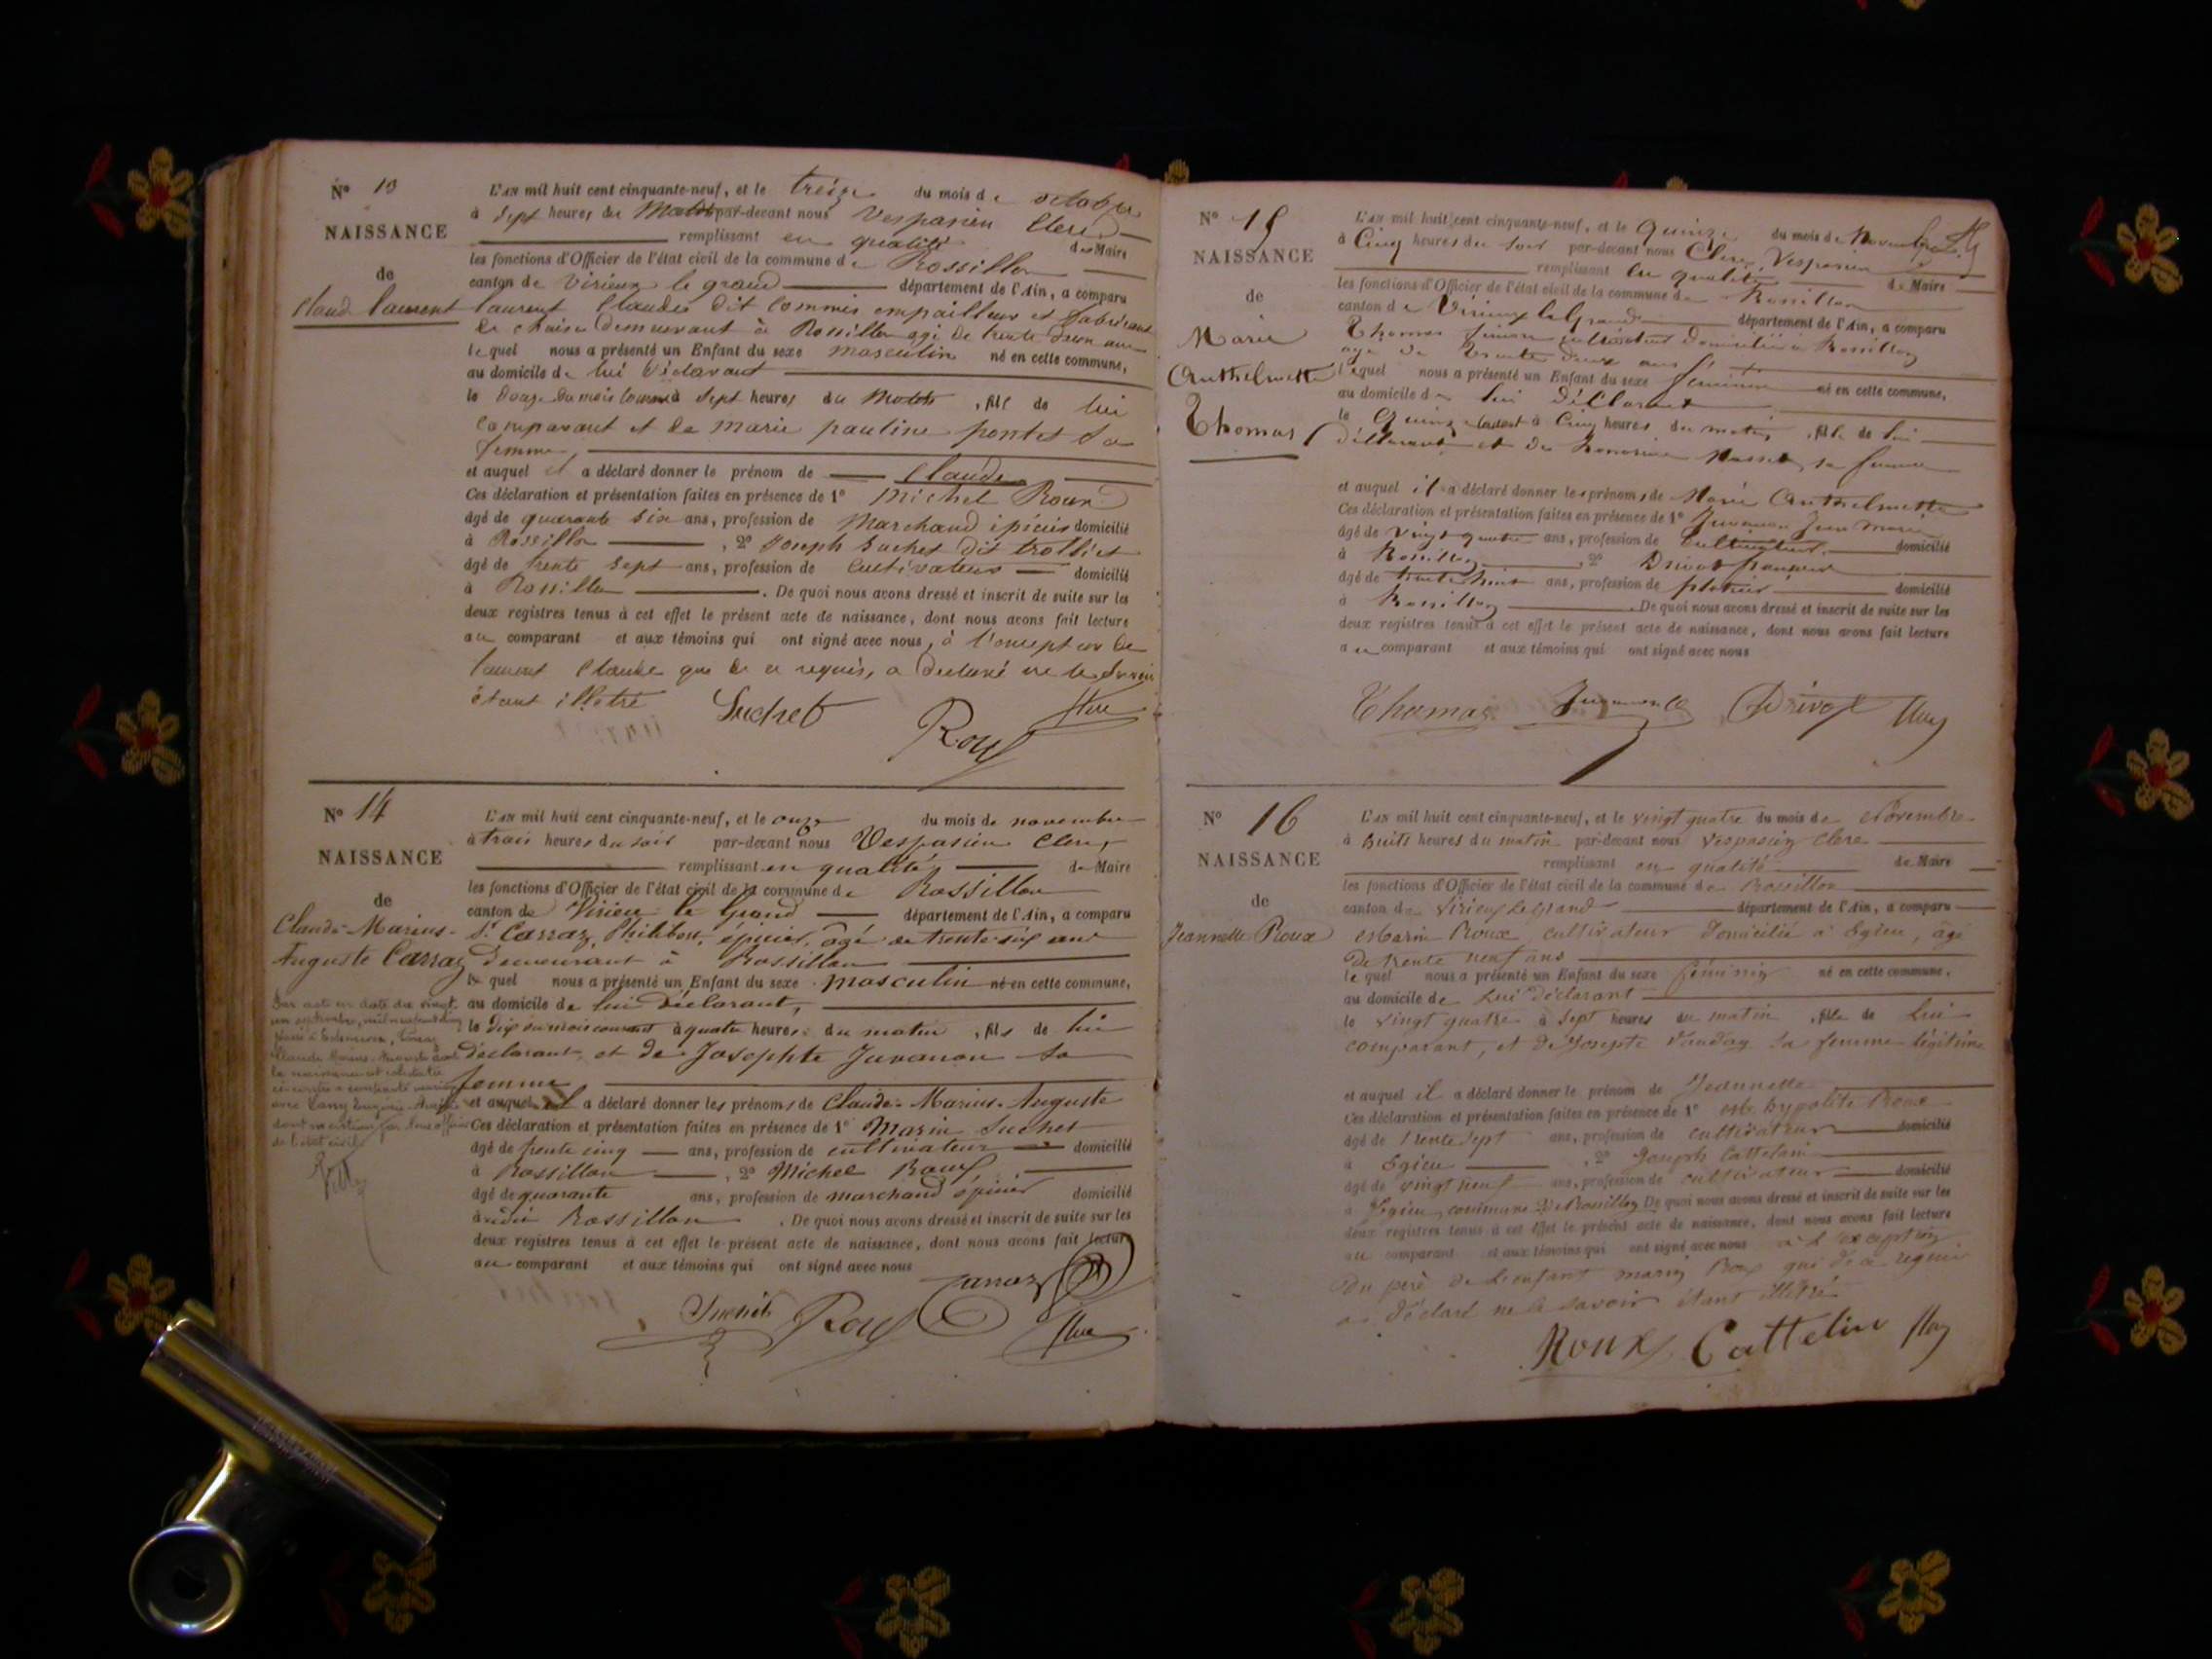 N° 13
NAISSANCE
de
Claude Laurent
L'AN mil huit cent cinquante-neuf, et le treize du mois de octobre
à sept heures du matin par-devant nous Vespasien Clerc
remplissant en qualité de Maire
les fonctions d'Officier de l'état civil de la commune de Rossillon
canton de Virieux le grand département de l'Ain, a comparu
laurent Claude dit Commis empailleur et fabricant
de chaise demeurant à Rossillon agé de trente deux ans
lequel nous a présenté un Enfant du sexe masculin né en cette commune,
au domicile de lui déclarant
le douze du mois courant à sept heures du matin, fils de lui
comparant et de marie pauline pontet sa
femme
et auquel il a déclaré donner le prénom de Claude
Ces déclaration et présentation faites en présence de 1° Michel Roux
âgé de quarante six ans, profession de Marchand épicier domicilié
à Rossillon , 2° Joseph Suchet dit trollict
âgé de trente sept ans, profession de Cultivateur domicilié
à Rossillon . De quoi nous avons dressé et inscrit de suite sur les
deux registres tenus à cet effet le présent acte de naissance, dont nous avons fait lecture
au comparant et aux témoins qui ont signé avec nous, à l'exception de
laurent Claude que de ce requis, a declaré ne le savoir
étant illetré Suchet Roux Clerc
N° 14
NAISSANCE
de
Claude-Marius-
Auguste Carraz
L'AN mil huit cent cinquante-neuf, et le onze du mois de novembre
à trois heures du soir par-devant nous Vespasien Clerc,
remplissant en qualité de Maire
les fonctions d'Officier de l'état civil de la commune de Rossillon
canton de Virieu le Grand département de l'Ain, a comparu
Sr Carraz, Philibert, épicier, âgé de trente-six ans
demeurant à Rossillon
lequel nous a présenté un Enfant du sexe masculin né en cette commune,
au domicile de lui déclarant,
le dix du mois courant à quatre heures du matin, fils de lui
déclarant, et de Josephte Juvanon sa
femme
et auquel il a déclaré donner les prénoms de Claude-Marius-Auguste
Ces déclaration et présentation faites en présence de 1° Marin Suchet
âgé de trente cinq ans, profession de cultivateur domicilié
à Rossillon , 2° Michel Roux,
âgé de quarante ans, profession de marchand épicier domicilié
à Rossillon . De quoi nous avons dressé et inscrit de suite sur les
deux registres tenus à cet effet le présent acte de naissance, dont nous avons fait lecture
au comparant et aux témoins qui ont signé avec nous
Carraz
Suchet Roux Clerc
Par acte en date du vingt
un septembre, mil neuf cent
Claude Marius Auguste dont
la naissance est constatée
ci-contre a contracté mariage
avec
dont mention par nous officier
de l'état civil
N° 15
NAISSANCE
de
Marie
Anthelmette
Thomas
L'AN mil huit cent cinquante-neuf, et le quinze du mois de Novembre
à Cinq heures du soir par-devant nous Clerc, Vespasien
remplissant en qualité de Maire
les fonctions d'Officier de l'état civil de la commune de Rossillon
canton de Virieux le Grand département de l'Ain, a comparu
Thomas cultivateur domicilié à Rossillon
age de trente deux ans
lequel nous a présenté un Enfant du sexe féminin né en cette commune,
au domicile de lui déclarant
le quinze courant à Cinq heures du matin, fille de lui
déclarant et de Honorine Masset sa femme
et auquel il a déclaré donner les prénoms de Marie Anthelmette
Ces déclaration et présentation faites en présence de 1° Juvanon Jean Marie
âgé de vingt quatre ans, profession de Cultivateur domicilié
à Rossillon , 2° Drivot françois
âgé de trente huit ans, profession de platrier domicilié
à Rossillon . De quoi nous avons dressé et inscrit de suite sur les
deux registres tenus à cet effet le présent acte de naissance, dont nous avons fait lecture
au comparant et aux témoins qui ont signé avec nous
Thomas Juvanon Drivot Clerc
N° 16
NAISSANCE
de
Jeannette Roux
L'AN mil huit cent cinquante-neuf, et le vingt quatre du mois de Novembre
à huits heures du matin par-devant nous Vespasien Clerc
remplissant en qualité de Maire
les fonctions d'Officier de l'état civil de la commune de Rossillon
canton de Virieux le grand département de l'Ain, a comparu
Marin Roux cultivateur domicilié à Egieu, âgé
de trente neuf ans
lequel nous a présenté un Enfant du sexe féminin né en cette commune,
au domicile de lui déclarant
le vingt quatre à sept heures du matin, fille de lui
comparant, et de Josepte Vauday sa femme légitime
et auquel il a déclaré donner le prénom de Jeannette
Ces déclaration et présentation faites en présence de 1° hypolite Roux
âgé de trente sept ans, profession de cultivateur domicilié
à Egieu , 2° Joseph Cattelin
âgé de vingt neuf ans, profession de cultivateur domicilié
à Egieu commune de Rossillon De quoi nous avons dressé et inscrit de suite sur les
deux registres tenus à cet effet le présent acte de naissance, dont nous avons fait lecture
au comparant et aux témoins qui ont signé avec nous à l'exception
du père de l'enfant marin Roux qui de ce requis
a déclaré ne le savoir étant illétré
Roux Cattelin Clerc